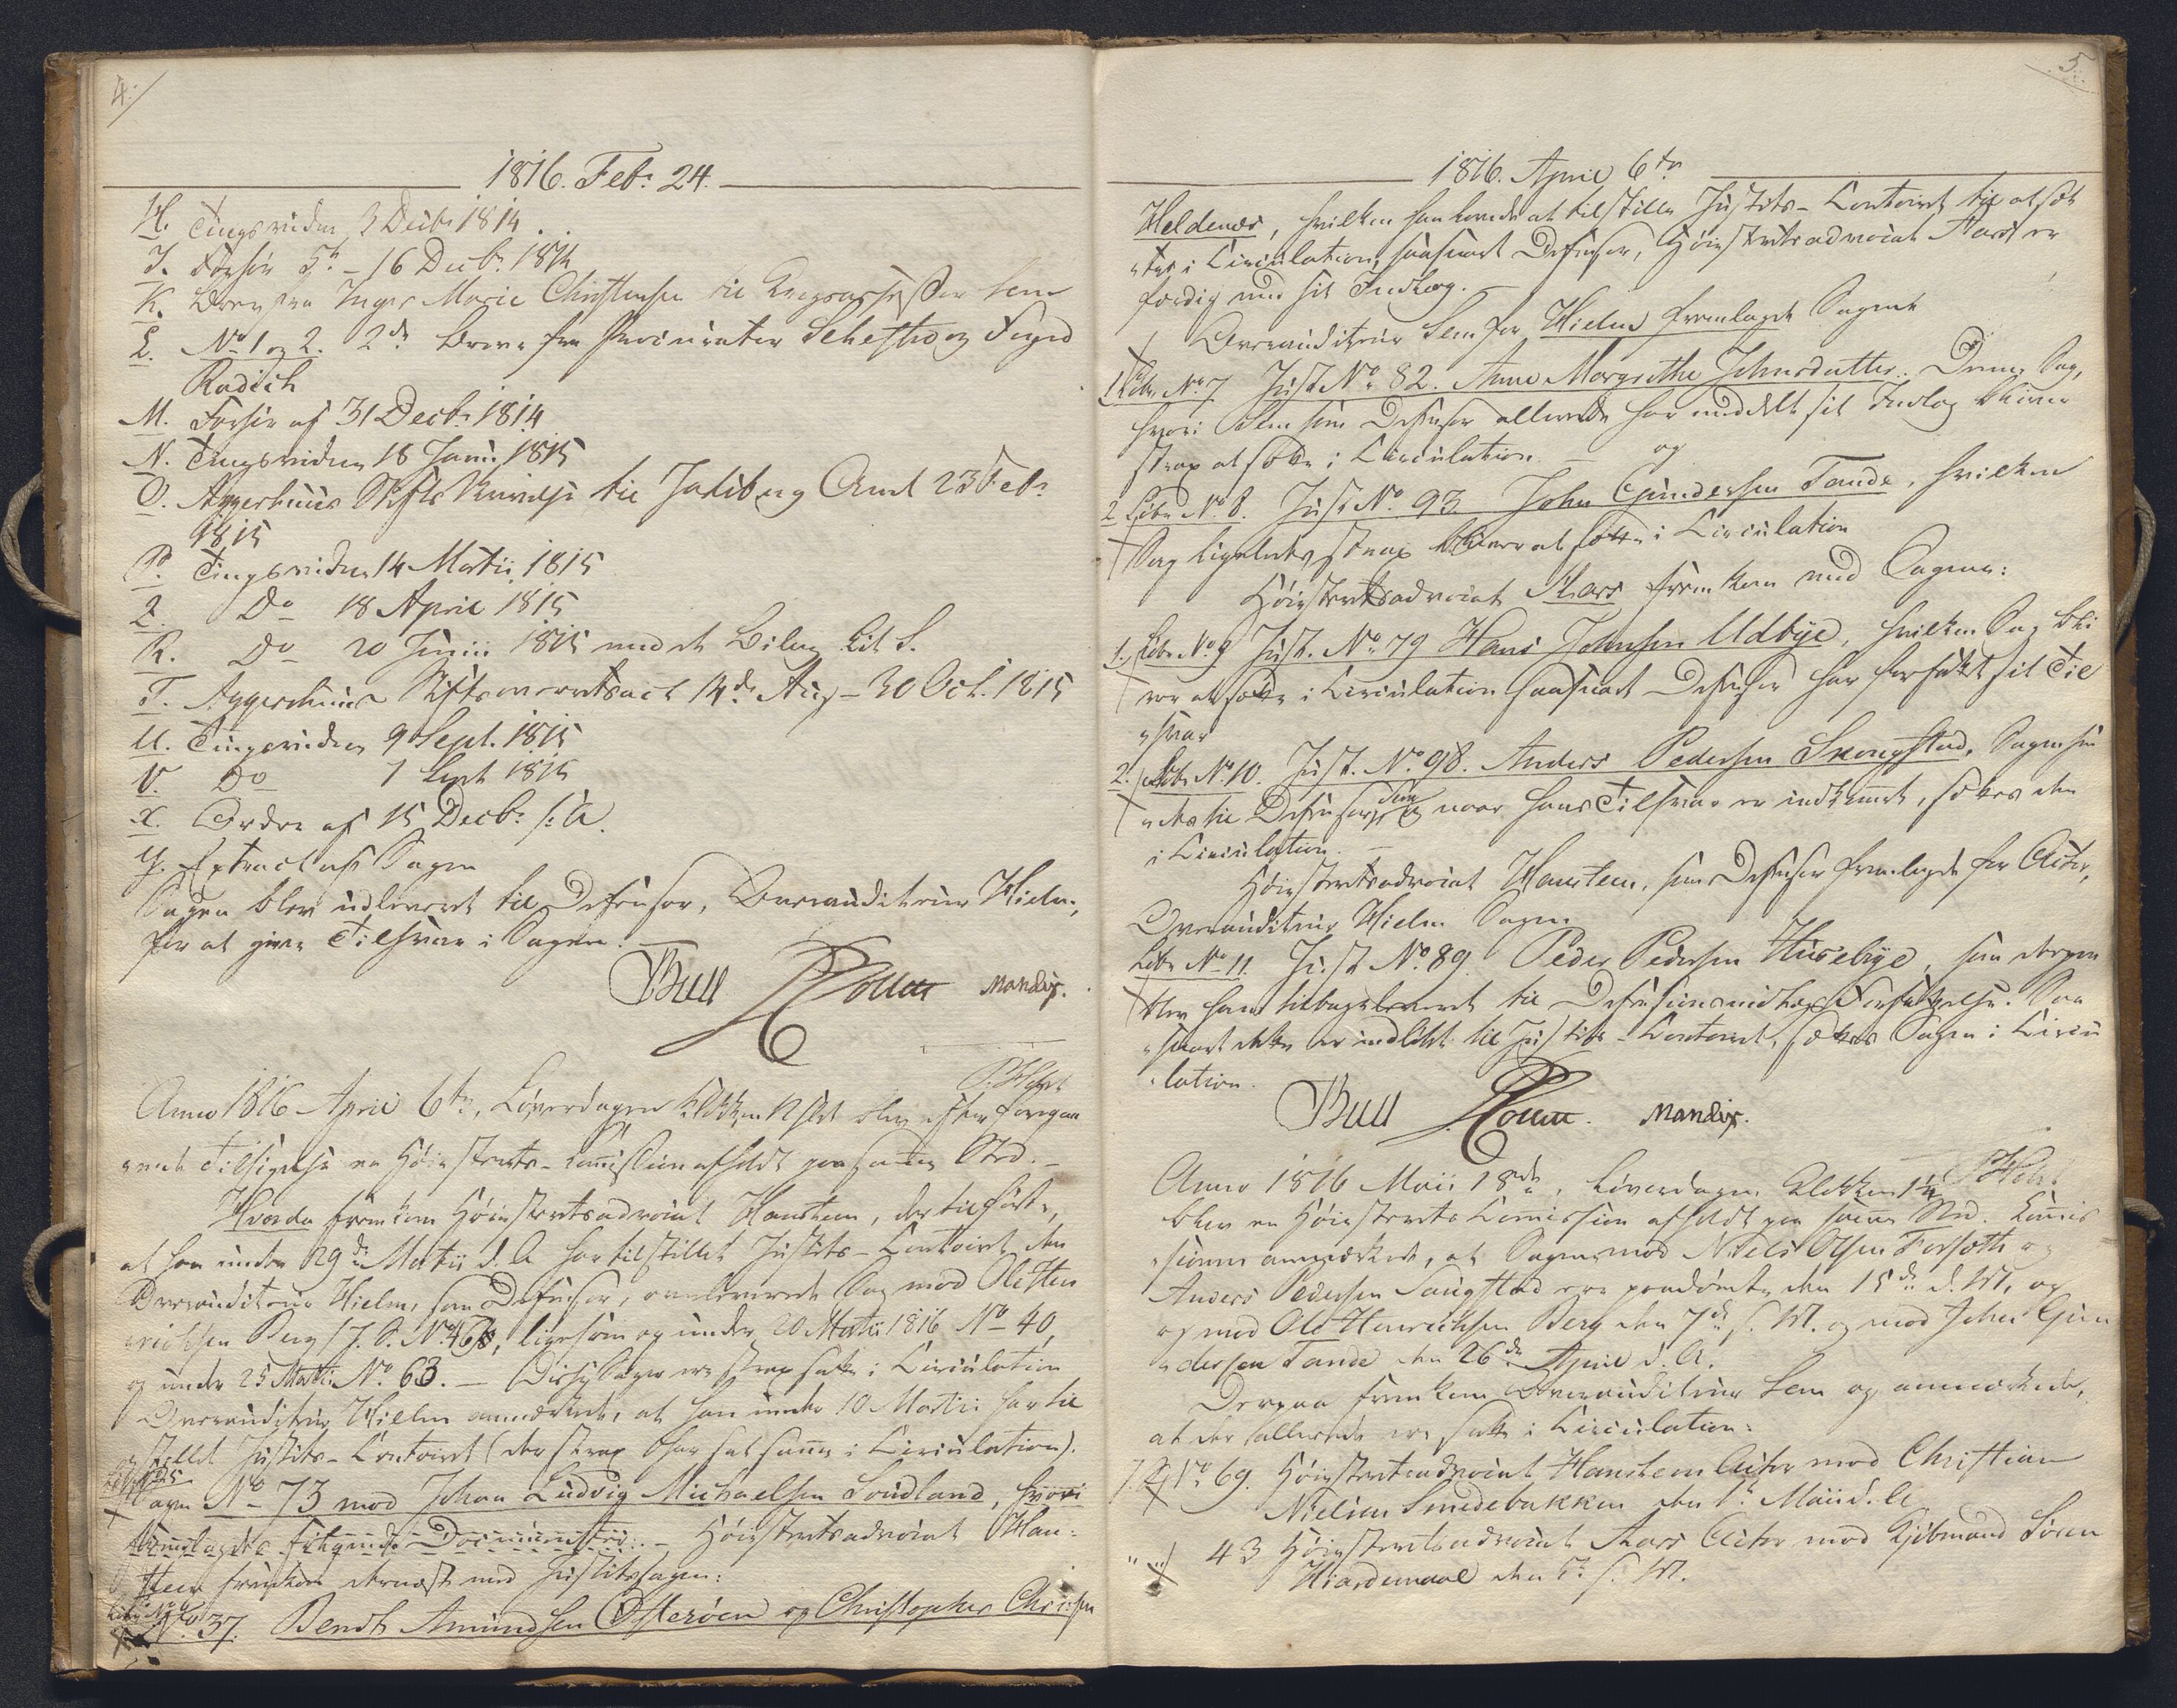 4./
1816. Febr. 24.
H. Tingsvidne 3 Decbr 1814.
I. Forhør 5te - 16 Decbr. 1814
K. Brev fra Inger Marie Christensen til Krogsassessor Sem
L. No 1 og 2. 2de Breve fra Procurator Scheftro og Foged
Radich
M. Forhør af 31 Decbr. 1814
N. Tingsvidne 18 Janr. 1815
O. Aggerhuus Stifts Skrivelse til Jarlsberg Amt 23 Febr.
1815
P. Tingsvidne 14 Martii 1815
Q. Do 18 April 1815
R. Do 20 Junii 1815 med et Bilag Lit S.
T. Aggershuus Stiftsoverretsact 14de Aug - 30 Oct. 1815
U. Tingsvidne 9 Sept. 1815
V. Do 7 Sept 1815
X. Ordre af 15 Decbr. s: A.
Y. Extract af Sagen
Sagen blev udleveret til Defensor, Overauditeur Hielm,
for at give Tilsvar i Sagen.
Bull Collett Mandix.
P. Holst
Anno 1816 April 6te, Løverdagen Klokken 12 Slet blev efter foregaa
ende Tilsigelse en Høiesterets-Commission afholdt paa samme Sted.
Hvorda fremkom Høiesteretsadvocat Hansteen, der tilførte,
at han under 29de Martii d. A har tilstillet Justits-Contoiret den
Overauditeur Hielm, som Defensor, overleverede Sag mod Ole Hen
richsen Berg J. S. No 46, ligesom og under 20 Martii 1816 No 40,
og under 25 Martii No 63. - Disse Sager ere strax satte i Circulation
Overauditeur Hielm anmærkede, at han under 10 Martii har til
stillet Justits-Contoiret (der strax har sat samme i Circulation).
Sagen No 73 mod Johan Ludvig Michaelsen Soudland, hvori
fremlagdes følgende Documenter: - Høiesteretsadvocat Han-
steen fremkom dernæst med Justitssagen:
No 37. Bendt Amundsen Osterøen og Christopher Chrisen
5.
1816. April 6te
Heldenæs, hvilken han lovede at tilstille Justits-Contoiret til at sæt
tes i Circulation, saasnart Defensor, Høiesteretsadvocat Aars er
færdig med sit Indlæg.
Overauditeur Sem for Hielm fremlagde Sagene
1. Lbr No 7 Just. No 82. Anne Margrethe Johnsdatter. Denne Sag,
hvori Sem som Defensor allerede har meddelt sit Indlæg bliver
strax at sætte i Circulation. - og
2 Lbr No 8. Just No. 93 John Gundersen Tande, hvilken
Sag ligeledes strax bliver at sætte i Circulation
Høiesteretsadvocat Aars fremkom med Sagene:
1. Lbr. No. 9 Just. No 79 Hans Johnsen Udbye, hvilken Sag bli
ver at sætte i Circulation saasnart Defensor har forfattet sit Til
svar
2. Lbr No 10. Just. No. 98. Anders Pedersen Skougstad. Sagen sen
des til Defensor Sem og naar hans Tilsvar er indkommet, sættes den
i Circulation. -
Høiesteretsadvocat Hansteen, som Defensor fremlagde for Actor,
Overauditeur Hielm Sagen
Lbr No 11. Just No. 89. Peder Pedersen Husebye, som derpaa
blev ham tilbageleveret til Defensionsindlægs Forfattelse. Saa
snart dette er indløbet til Justits-Contoiret, sættes Sagen i Circu
lation.
Bull Collett. Mandix.
P. Holst
Anno 1816 Maii 18de, Løverdagen Klokken 1
blev en Høiesterets Commission afholdt paa samme Sted. Commis
sionen anmærkede, at Sagene mod Niels Olsen Forsæth og
Anders Pedersen Saugstad ere paadømte den 15de d. M., og
og mod Ole Henrichsen Berg den 7de s. M. og mod John Gun
dersen Tande den 26de April d. A.
Derpaa fremkom Overauditeur Sem og anmærkede,
at der allerede ere satte i Circulation:
J. S. No 69. Høiesteretsadvocat Hansteen Actor mod Christian
Nielsen Smedebakken den 1te Maii d. A
" " 43 Høiesteretsadvocat Aars Actor mod Kjøbmand Søren
Hiardemaal den s. M.